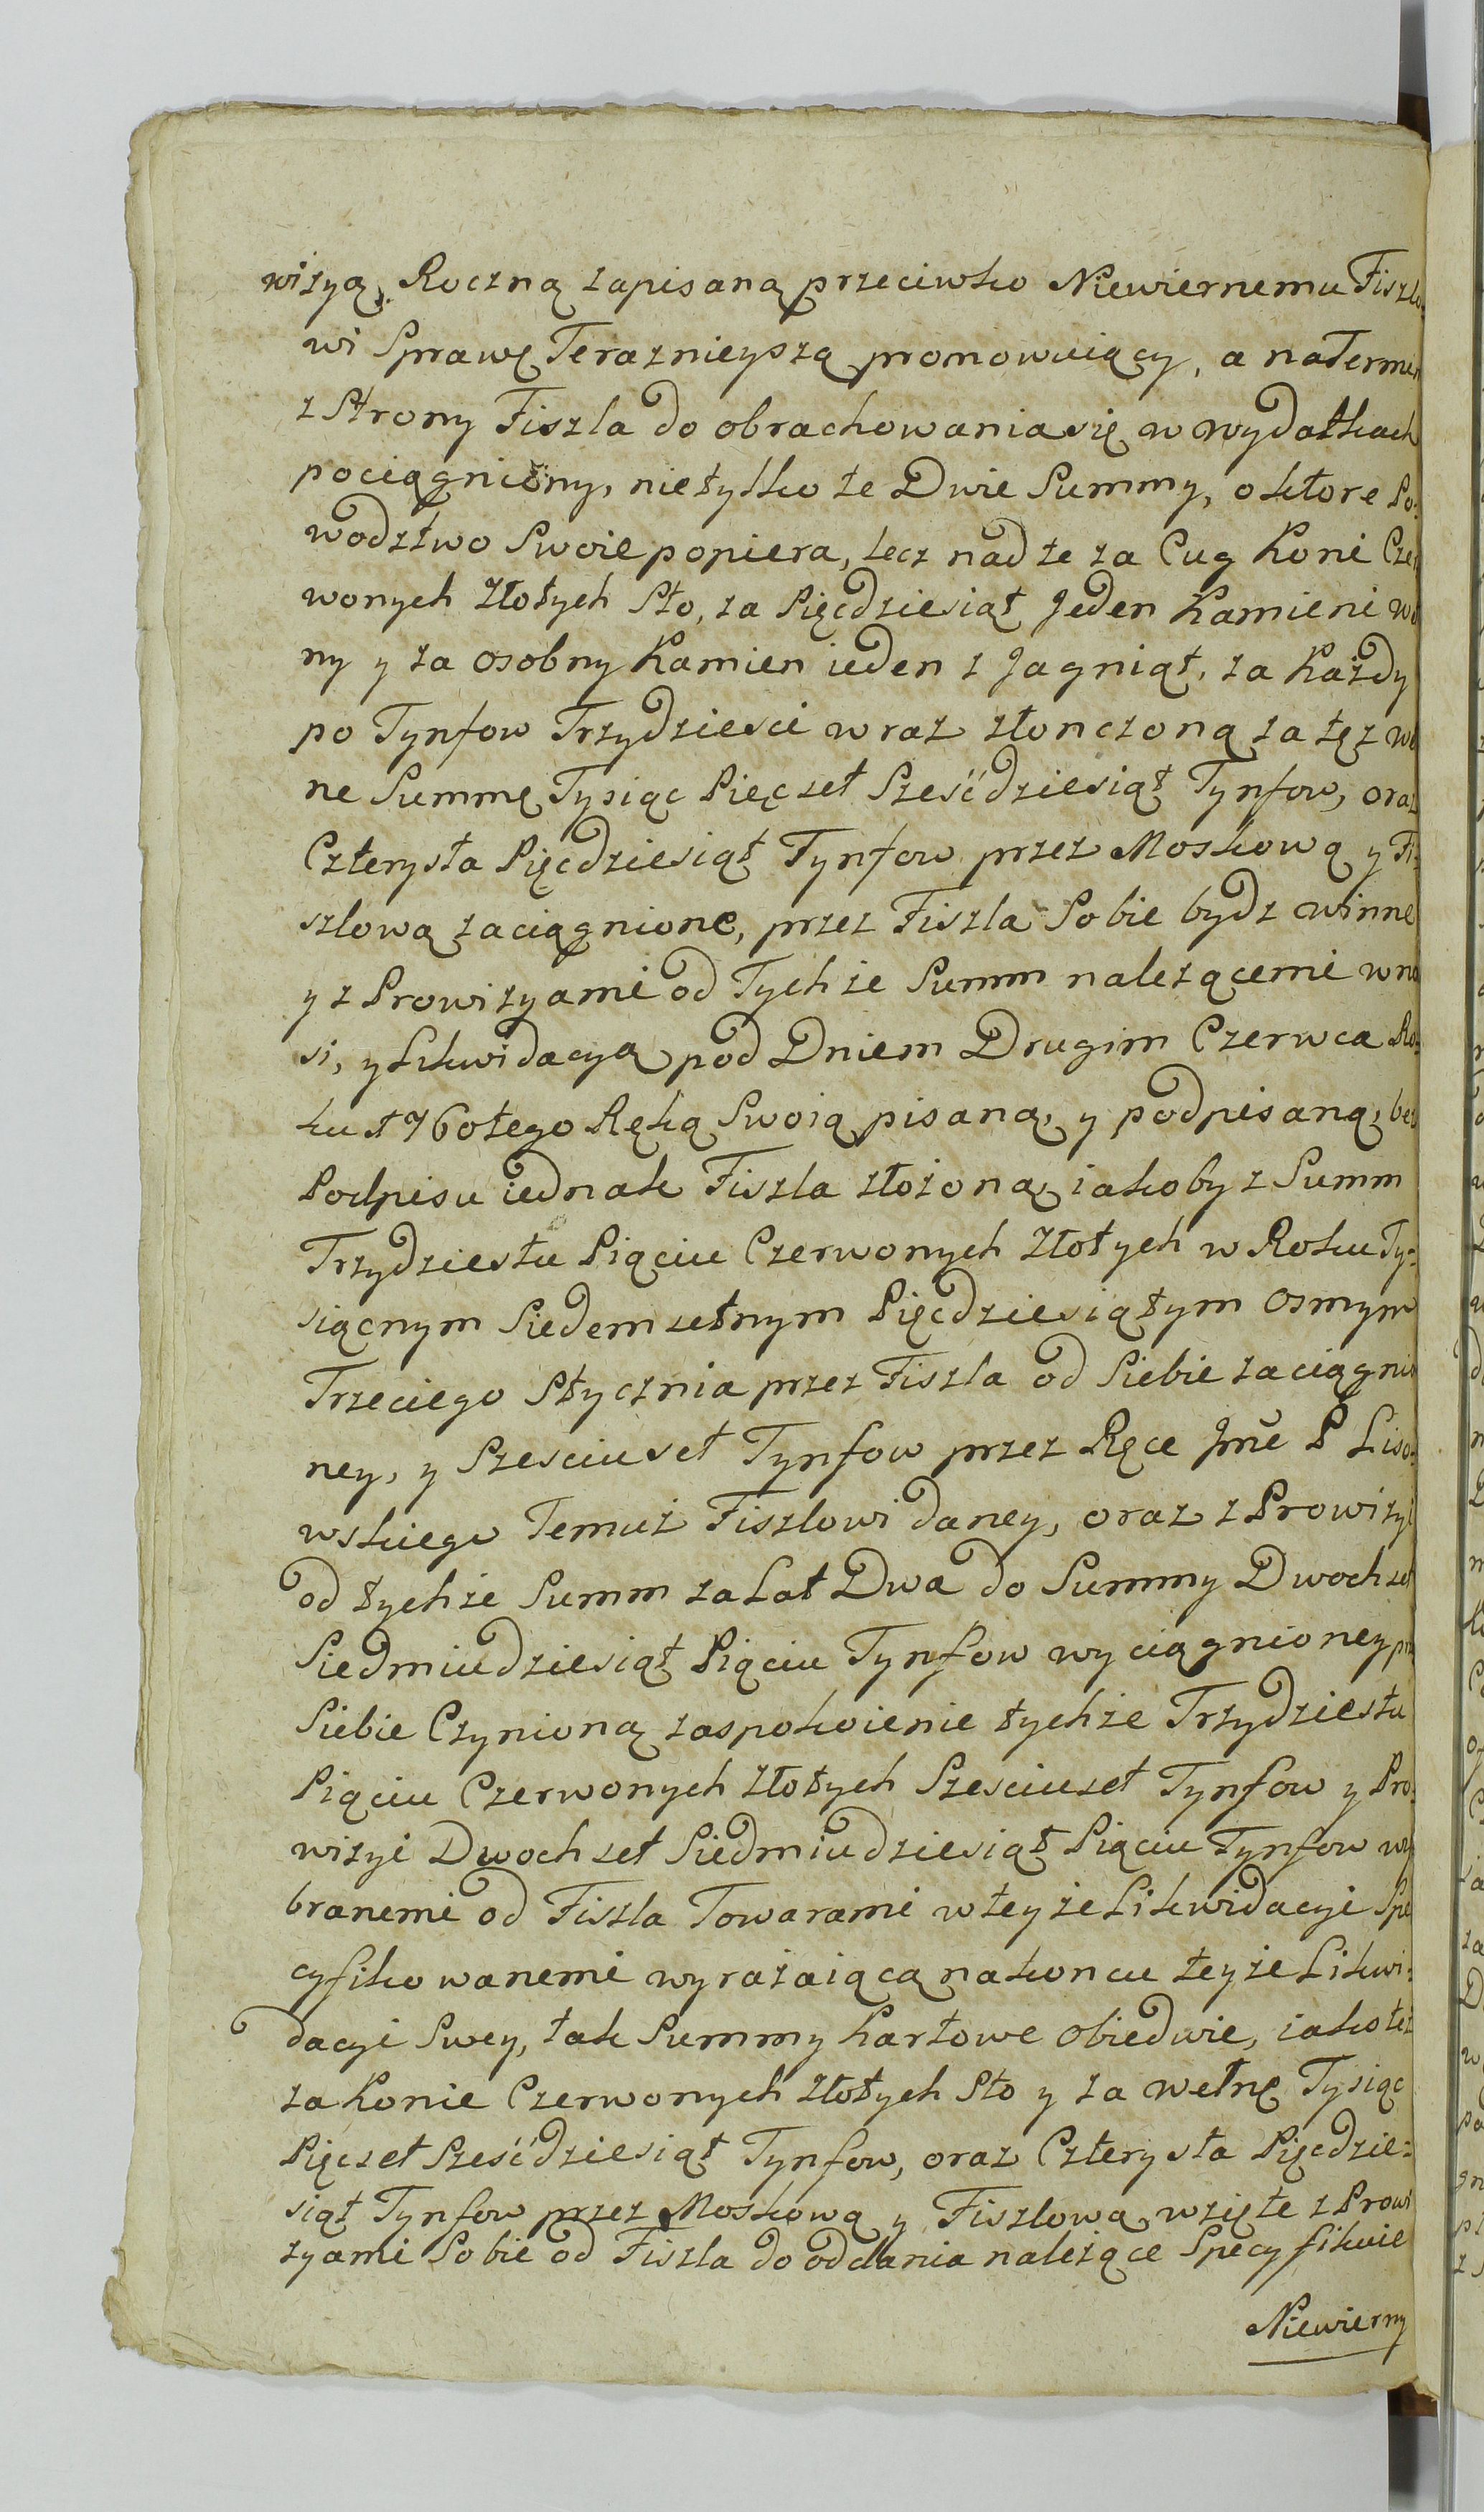 wizyą Roczną zapisaną przeciwko Niewiernemu Fiszlo
wi Sprawę Teraznieyszą promowuiący, a na Termin
z Strony Fiszla do obrachowania się w wydatkach
pociągniony, nie tylko te Dwie Summy, o ktore Po=
wodztwo Swoie popiera, lecz nad te za Cug Koni Czer
wonych Złotych Sto, za Pięcdziesiąt Jeden Kamieni we
ny y za osobny Kamien ieden z Jagniąt, za Każdy
po Tynfow Trzydziesci wraz złonczoną za tęz we
ne Summę Tysiąc Pięcset Sześćdziesiąt Tynfow, oraz
Czterysta Pięcdziesiąt Tynfow przez Moskową y Fi=
szlową zaciągnione, przez Fiszla Sobie bydz winne
y z Prowizyami od Tychze Summ nalezącemi wno
si, y Likwidacyą pod Dniem Drugim Czerwca Ro=
ku 1760tego Ręką Swoią pisaną, y podpisaną, bez
Podpisu iednak Fiszla złożoną iakoby z Summ
Trzydziestu Piąciu Czerwonych Złotych w Roku Ty=
siącnym Siedemsetnym Pięcdziesiątym Osmym
Trzeciego Stycznia przez Fiszla od Siebie zaciągnio
ney, y Szesciuset Tynfow przez Ręce Jmć P Liso=
wskiego Temuż Fiszlowi daney, oraz z Prowizyi
od tychże Summ za Lat Dwa do Summy Dwochset
Siedmiudziesiąt Piąciu Tynfow wyciągnioney prz
Siebie Czynioną zaspokoienie tychże Trzydziestu
Piąciu Czerwonych Złotych Szesciuset Tynfow y Pro=
wizyi Dwochset Siedmiudziesiąt Piąciu Tynfow wy
branemi od Fiszla Towarami w teyże Likwidacyi Spe
cyfikowanemi wyrażaiącą na koncu teyże Likwi=
dacyi Swey, tak Summy Kartowe obiedwie, iako też
za Konie Czerwonych Złotych Sto y za wełnę Tysiąc
Pięcset Sześćdziesiąt Tynfow, oraz Czterysta Pięcdzie=
siąt Tynfow przez Moskową y Fiszlową wzięte z Prowi
zyami Sobie od Fiszla do oddania należące Specyfikuie
Niewierny